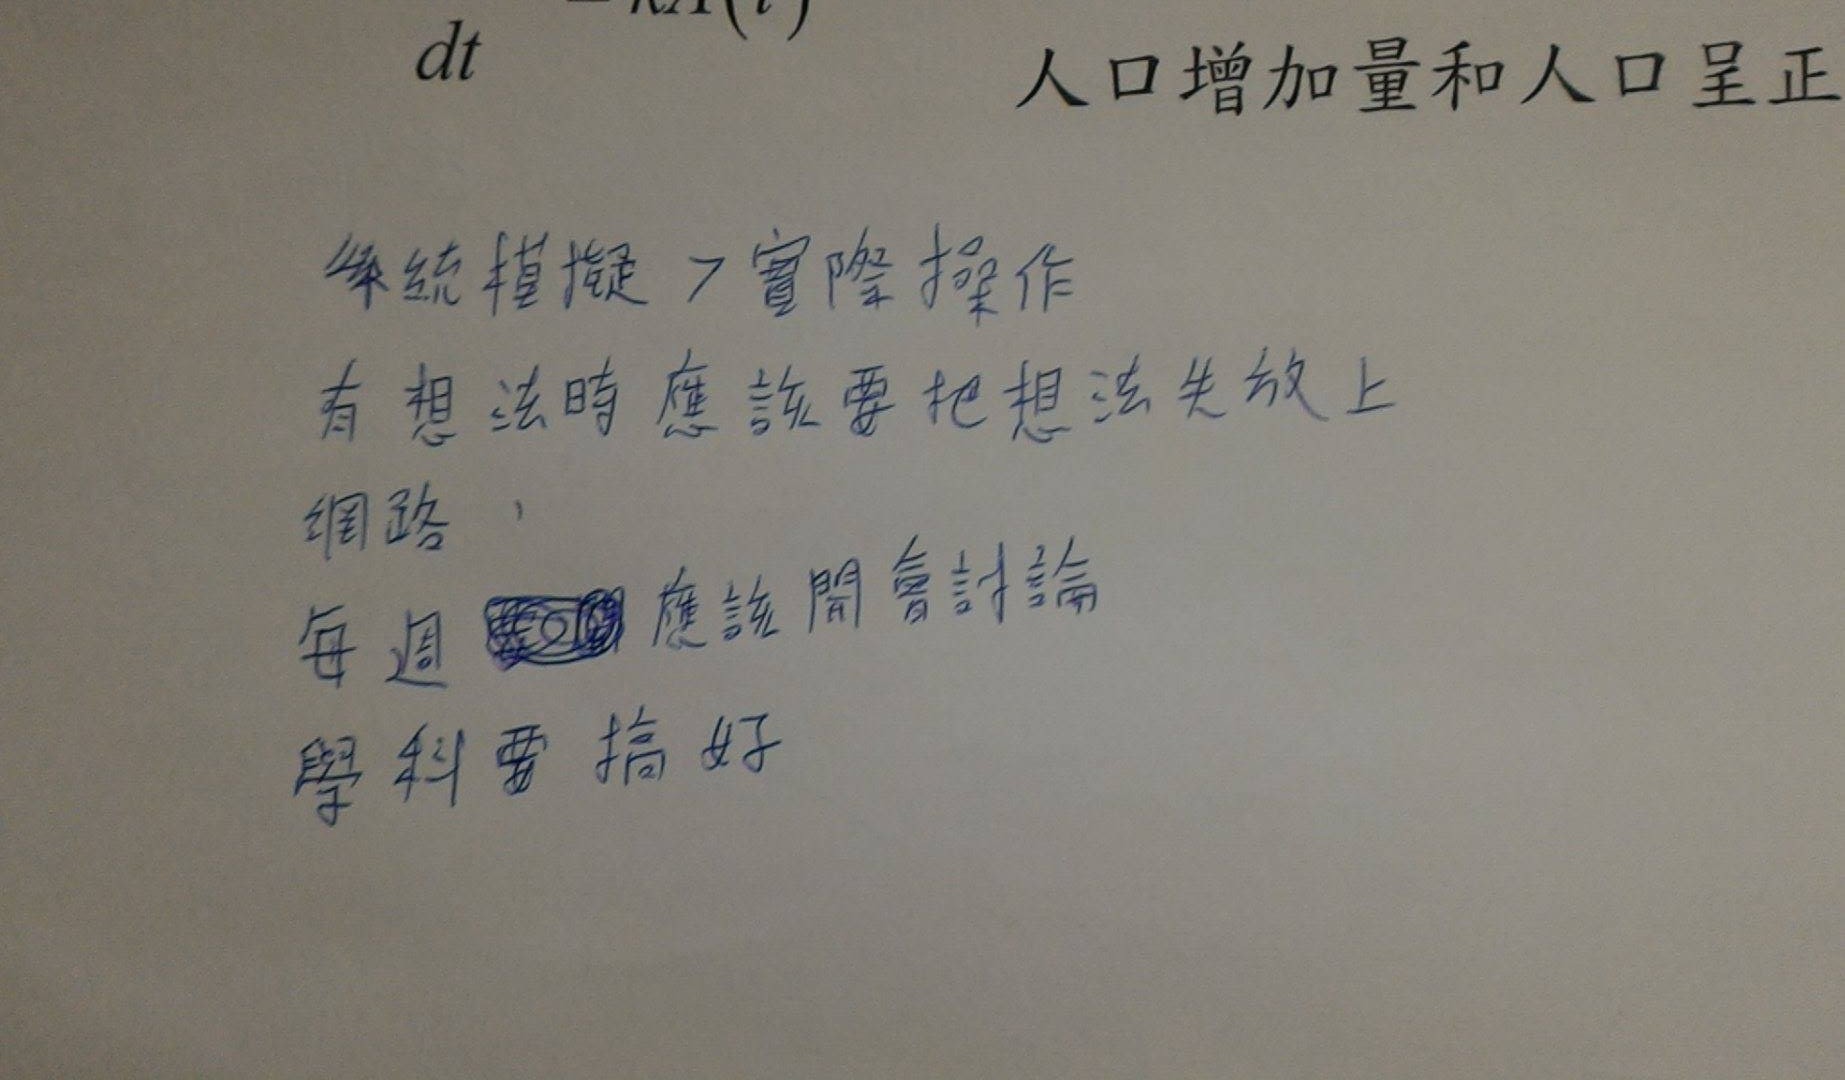 dt = kA(t)
人口增加量和人口呈正
係統模擬 > 實際操作
有想法時應該要把想法失放上
網路,
每週應該開會討論
學科要搞好